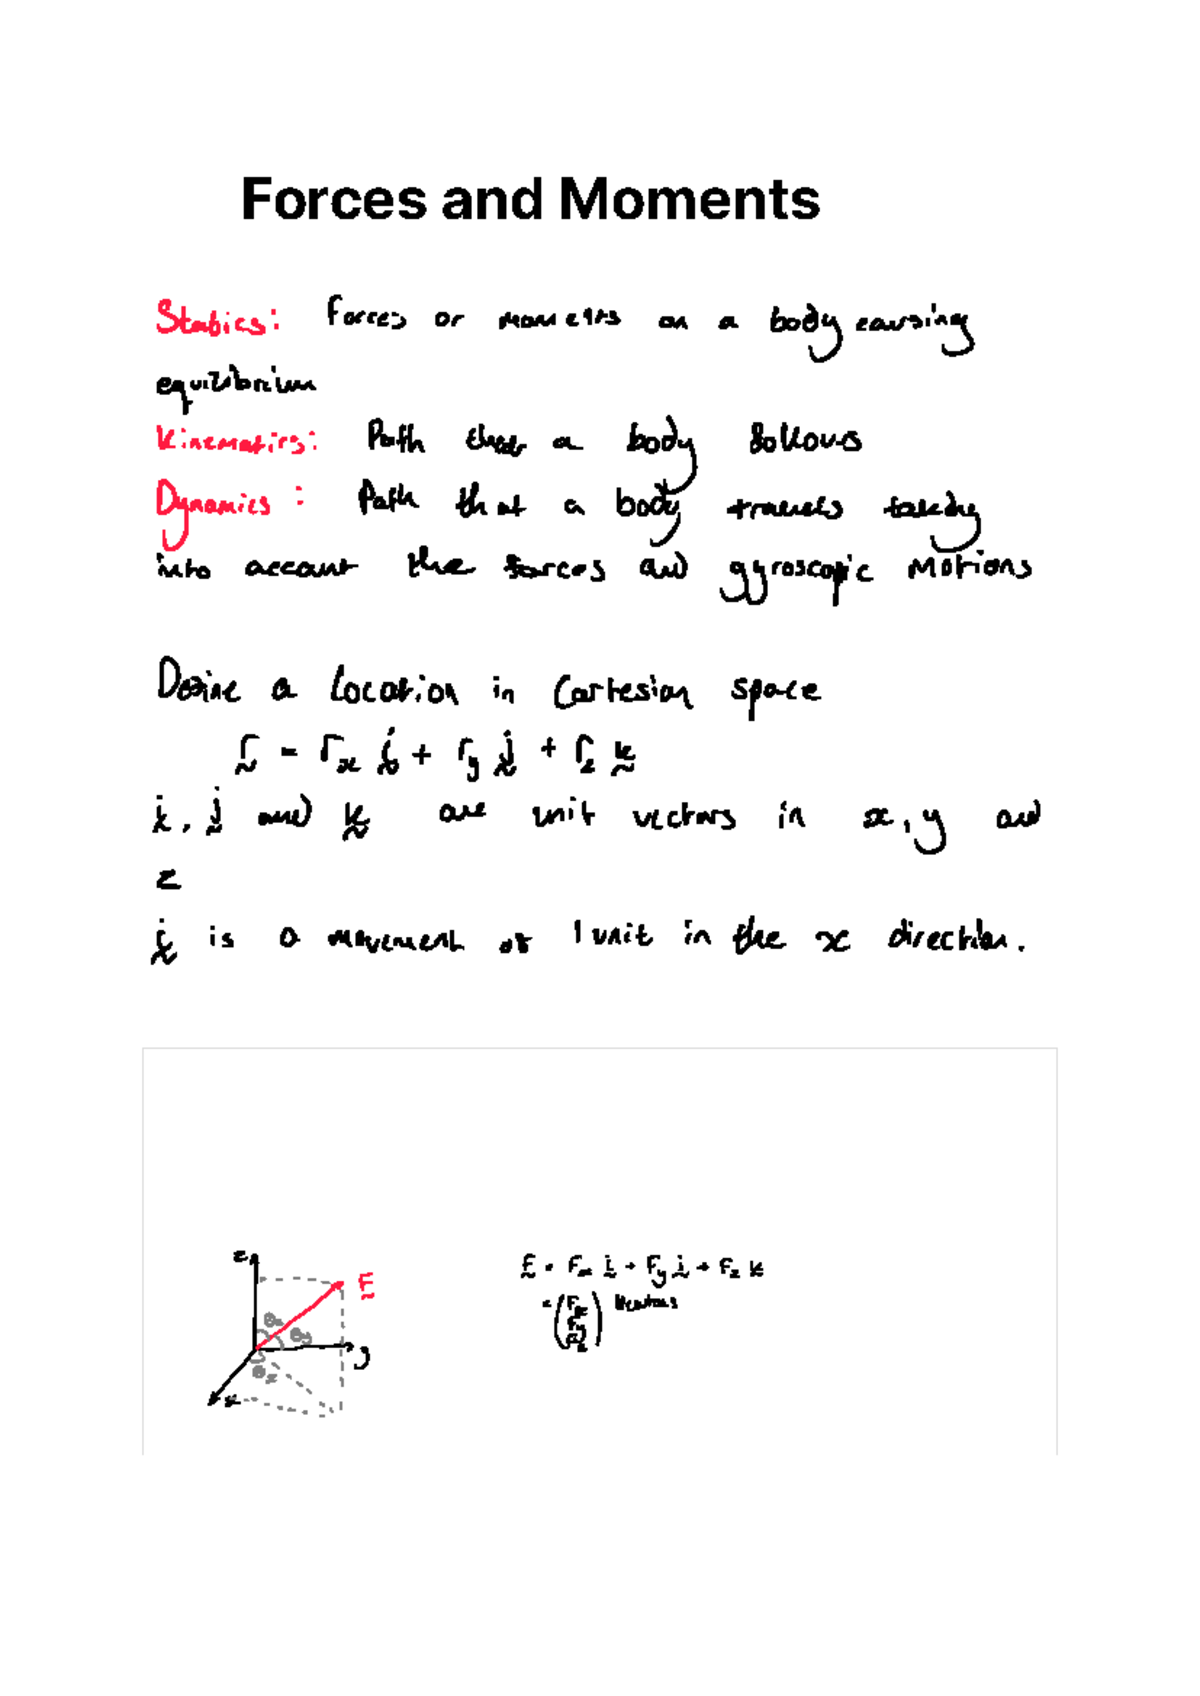 Forces and Moments
Statics: Forces or moments on a body causing
equilibrium
Kinematics: Path that a body follows
Dynamics: Path that a body travels taking
into account the forces and gyroscopic motions
Define a location in Cartesian space
r = rx i + ry j + rz k
i, j and k are unit vectors in x, y and
z
i is a movement of 1 unit in the x direction.
z
F
F = Fx i + Fy j + Fz k
= (Fx Fy Fz) Newtons
θz
θy
y
θx
x